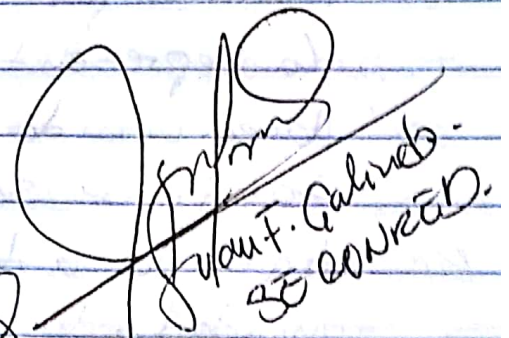 Juan F. Galindo.
SE CONRED.